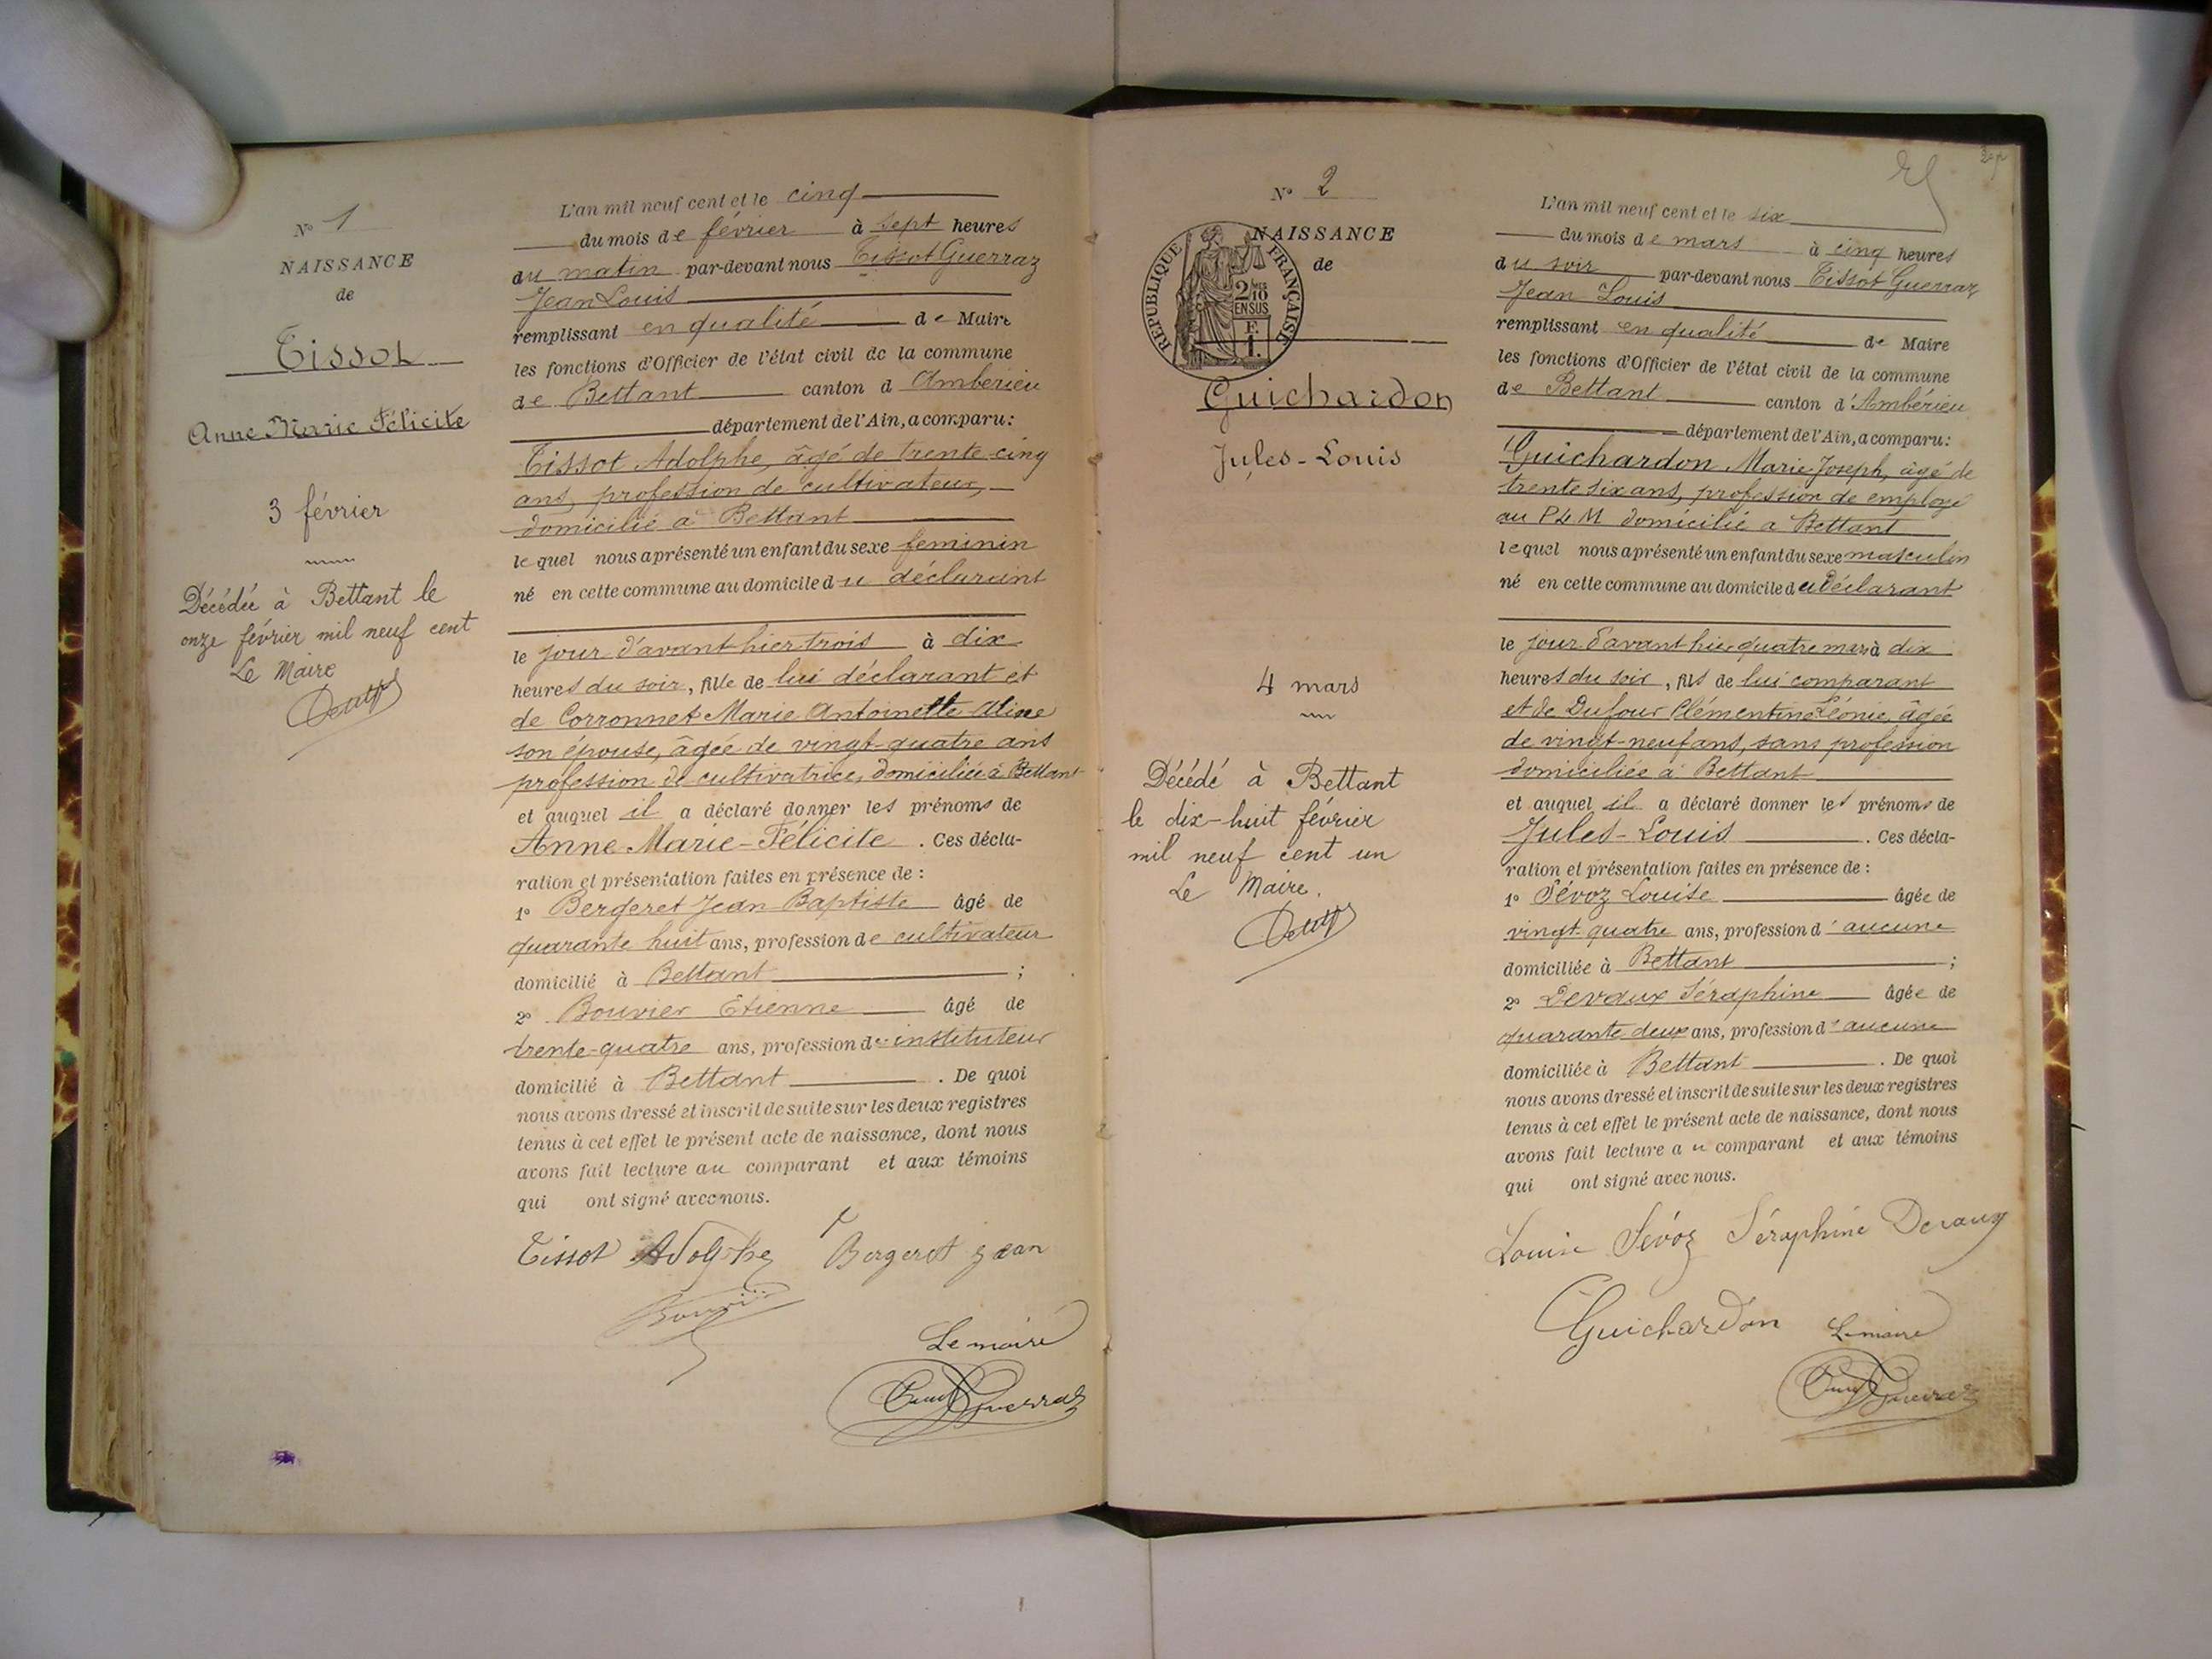 N° 1
NAISSANCE
de
Tissot
Anne Marie Félicite
3 février
Décédée à Bettant le
onze février mil neuf cent
Le Maire
L'an mil neuf cent et le cinq
du mois de février à sept heures
du matin par-devant nous Tissot Guerraz
Jean Louis
remplissant en qualité de Maire
les fonctions d'Officier de l'état civil de la commune
de Bettant canton d Ambérieu
département de l'Ain, a comparu:
Tissot Adolphe, âgé de trente-cinq
ans, profession de cultivateur,
domicilié à Bettant
lequel nous a présenté un enfant du sexe feminin
né en cette commune au domicile du déclarant
le jour d'avant hier trois à dix
heures du soir, fille de lui déclarant et
de Corronnet Marie Antoinette Aline
son épouse, âgée de vingt-quatre ans
profession de cultivatrice, domiciliée à Bettant
et auquel il a déclaré donner les prénoms de
Anne Marie-Félicite. Ces décla-
ration et présentation faites en présence de :
1° Bergeret Jean Baptiste âgé de
quarante huit ans, profession de cultivateur
domicilié à Bettant ;
2° Bouvier Etienne âgé de
trente-quatre ans, profession d'instituteur
domicilié à Bettant . De quoi
nous avons dressé et inscrit de suite sur les deux registres
tenus à cet effet le présent acte de naissance, dont nous
avons fait lecture au comparant et aux témoins
qui ont signé avec nous.
Tissot Adolphe Bergeret Jean
Bouvier
Le maire
Guerraz
N° 2
NAISSANCE
de
REPUBLIQUE FRANÇAISE
2/10 MES
EN SUS
F.
1.
Guichardon
Jules-Louis
4 mars
Décédé à Bettant
le dix-huit février
mil neuf cent un
Le Maire.
L'an mil neuf cent et le six
du mois de mars à cinq heures
du soir par-devant nous Tissot Guerraz
Jean Louis
remplissant en qualité de Maire
les fonctions d'Officier de l'état civil de la commune
de Bettant canton d'Ambérieu
département de l'Ain, a comparu:
Guichardon Marie Joseph, âgé de
trente six ans, profession de employé
au P L M domicilié à Bettant
lequel nous a présenté un enfant du sexe masculin
né en cette commune au domicile du déclarant
le jour d'avant hier quatre mars à dix
heures du soir, fils de lui comparant
et de Dufour Clémentine Léonie, âgée
de vingt-neuf ans, sans profession
domiciliée à Bettant
et auquel il a déclaré donner les prénoms de
Jules-Louis . Ces décla-
ration et présentation faites en présence de :
1° Févoz Louise âgée de
vingt quatre ans, profession d'aucune
domiciliée à Bettant ;
2° Devaux Séraphine âgée de
quarante deux ans, profession d'aucune
domiciliée à Bettant . De quoi
nous avons dressé et inscrit de suite sur les deux registres
tenus à cet effet le présent acte de naissance, dont nous
avons fait lecture au comparant et aux témoins
qui ont signé avec nous.
Louise Févoz Séraphine Devaux
Guichardon Le maire
Guerraz